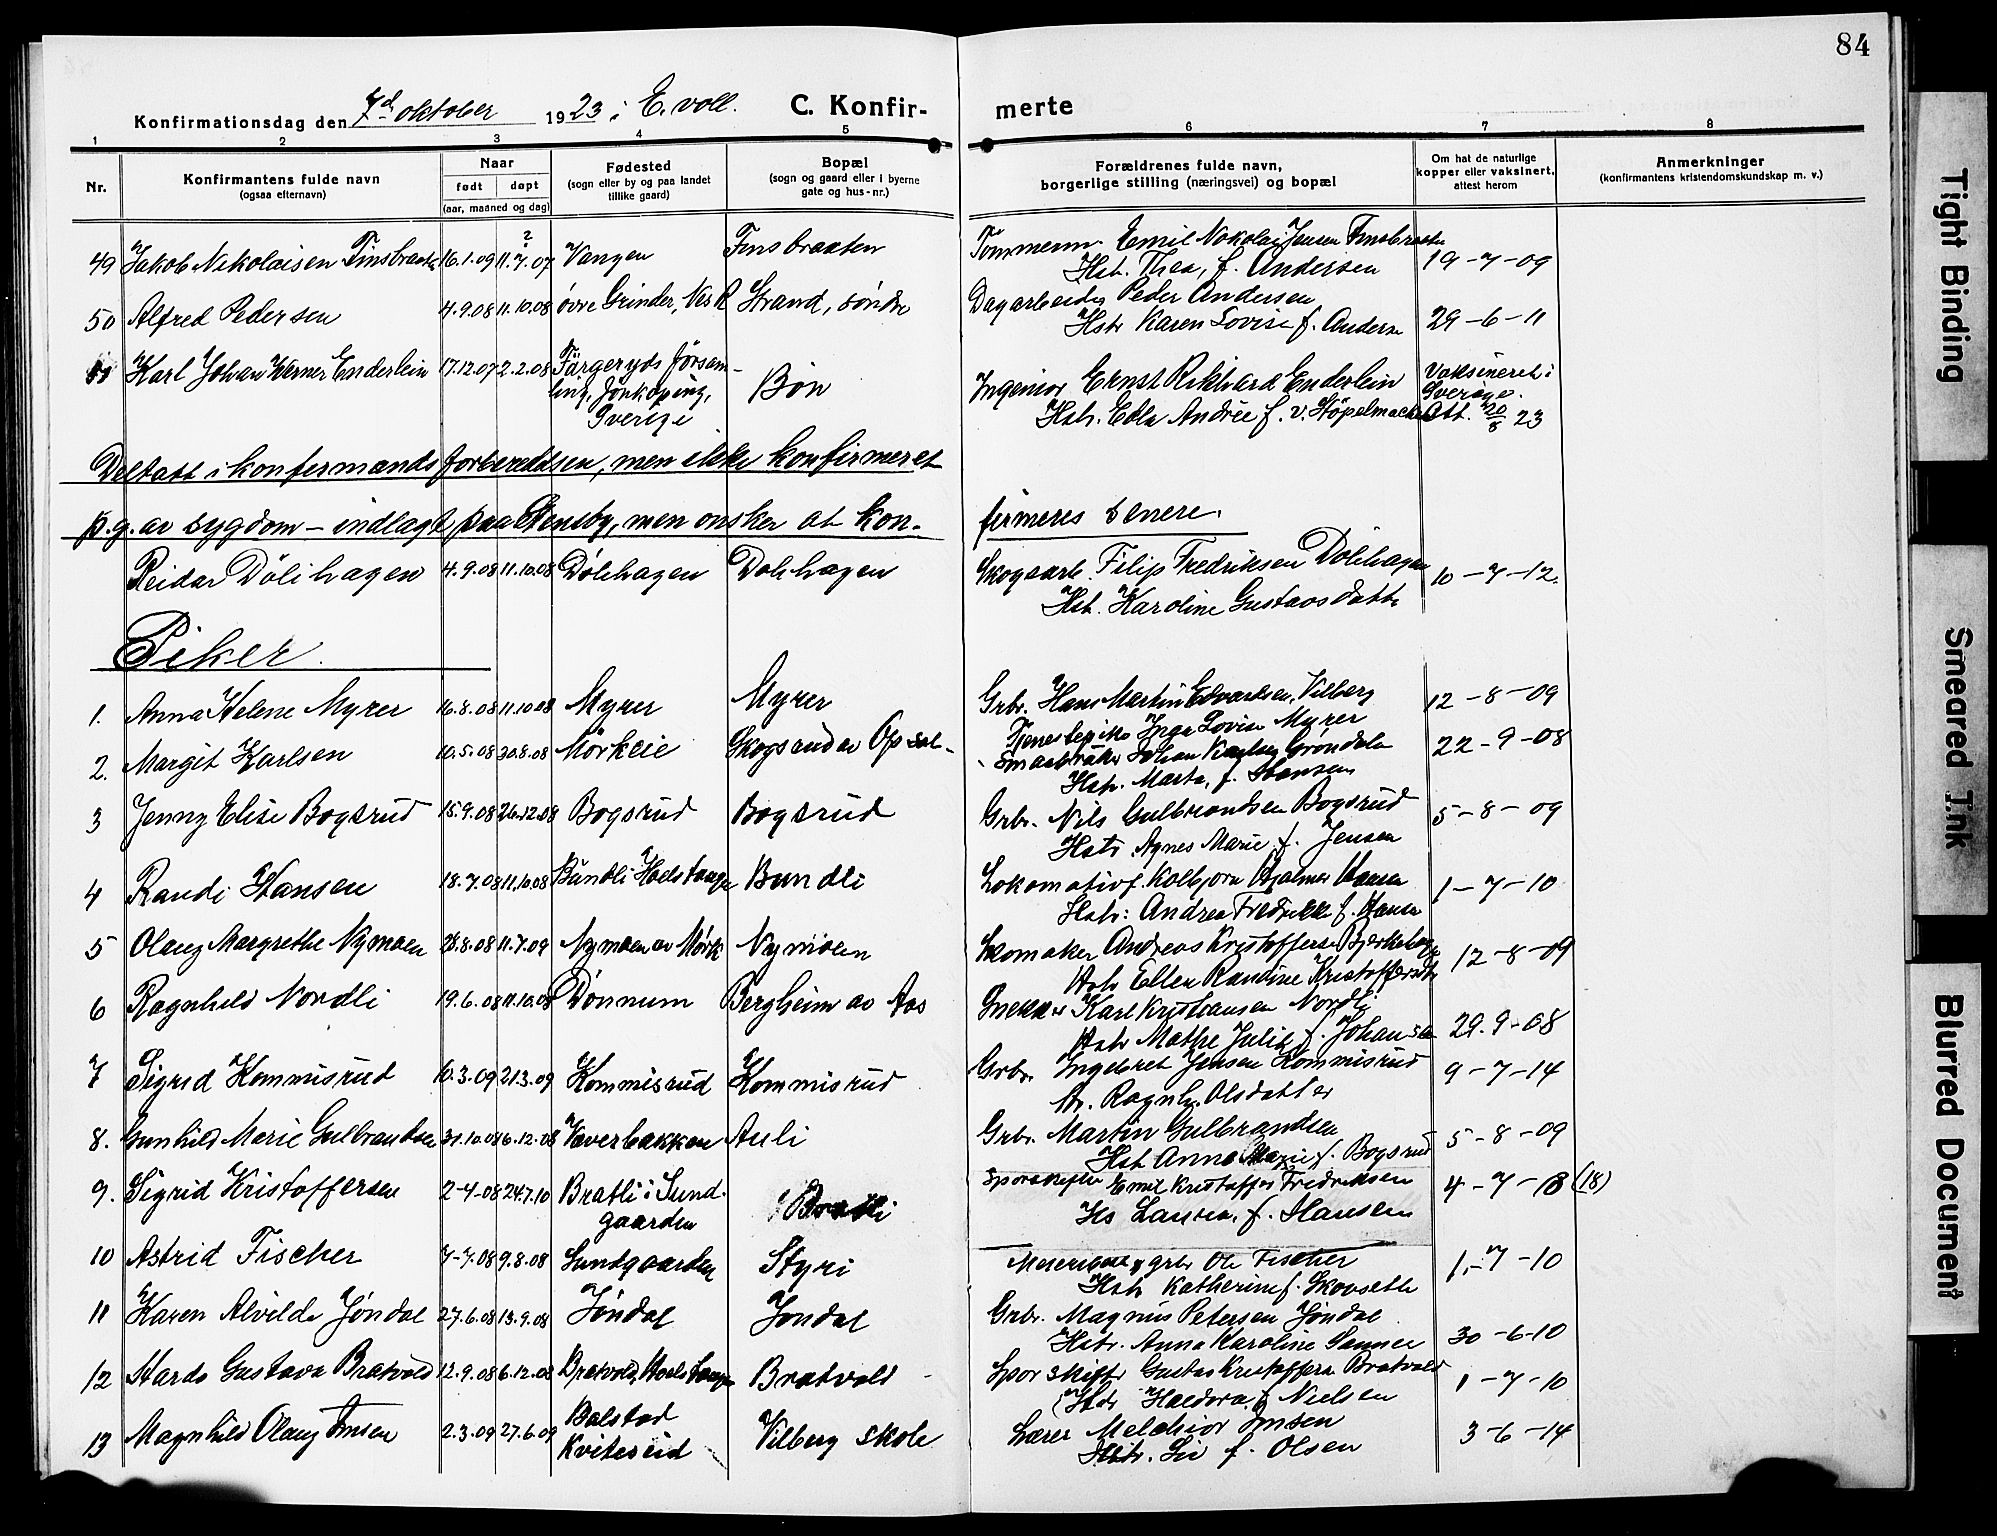 84
Konfirmationsdag den 7d oktober 1923 i E.voll. C. Konfir- merte
1 2 3 4 5 6 7 8
Nr. Konfirmantens fulde navn (ogsaa efternavn) Naar født døpt (aar, maaned og dag) Fødested (sogn eller by og paa landet tillike gaard) Bopæl (sogn og gaard eller i byerne gate og hus-nr.) Forældrenes fulde navn, borgerlige stilling (næringsvei) og bopæl Om hat de naturlige kopper eller vaksinert, attest herom Anmerkninger (konfirmantens kristendomskundskap m. v.)
49 Jakob Nikolaisen Finsbraaten 16.1.09 11.7.07 ? Vangen Finsbraaten Tømmerm. Emil Nokolai Jensen Finsbraaten 19-7-09
Hstr. Thea, f. Andersen
50 Alfred Pedersen 4.9.08 11.10.08 øvre Grinder, Strand, søndre Dagarbeider Peder Andersen 29-6-11
Hstr Karen Lovise f. Anders
Karl Johan Werner Enderlein 17.12.07 2.2.08 Färgeryds församling, Jönköping, Sverige Bøn Ingeniør Ernst Rikhard Enderlein Vaksineret i Sverige.
Hstr. Edla Andrée f. v. Stöpelmacher Att. 20/8 23
Deltatt i konfermandsforberedelsen, men ikke konfirmeret
p.g. av sygdom – indlagt paa Stensby, men ønsker at kon- firmeres senere.
Reidar Dölihagen 4.9.08 11.10.08 Dölihagen Dølihagen Skogsarb. Filip Fredriksen Dölihagen 10-7-12.
Hstr. Karoline Gustavsdatter
Piker.
1. Anna Helene Myrer 16.8.08 11.10.08 Myrer Myrer Grbr. Hans Martin Edvardsen, Vilberg 12-8-09
Tjenestepike Inga Lovise Myrer
2. Margit Karlsen 10.5.08 30.8.08 Mörkeie Skogsrud av Opsal Smaabruker Johan Karlsen Grøndalen 22-9-08
Hstr. Marta, f. Hansen
3 Jenny Elise Bogsrud 15.9.08 26.12.08 Bogsrud Bogsrud Grbr. Nils Gulbrandsen Bogsrud 5-8-09
Hstr. Agnes Marie f. Jensen
4 Randi Hansen 18.7.08 11.10.08 Bundli Hoelstangen Bundli Lokomativf. Kolbjørn Hjalmar Hansen 1-7-10
Hstr: Andrea Fredrikke f. Hansen
5 Olaug Margrethe Nymoen 28.8.08 11.7.09 Nymoen av Mørk Nymoen Skomaker Andreas Kristoffersen Bjerkehagen 12-8-09
Hstr Ellen Randine Kristoffersdtr
6 Ragnhild Nordli 19.6.08 11.10.08 Dönnum Bergheim av Aas Snekker Karl Kristiansen Nordli 29.9-08
Hstr Mathe Julie f. Johansen
7 Sigrid Kommisrud 10.3.09 21.3.09 Kommisrud Kommisrud Grbr. Ingebret Jensen Kommisrud 9-7-14
Hstr. Ragnh. Olsdatter
8. Gunhild Marie Gulbrandsen 31.10.08 6.12.08 Væverbakken Auli Grbr. Martin Gulbrandsen 5-8-09
Hstr Anna Marie f. Bogsrud
9. Sigrid Kristoffersen 2-4-08 24.7.10 Bratli i Sundgaarden Bratli Sporskifter Emil Kristoffer Fredriksen 4-7-18 (18)
Hs Laura, f. Hansen
10 Astrid Fischer 7-7.08 9.8.08 Sundgaarden Styri Meierist, grbr Ole Fischer 1.-7-10
Hstr Katherine f. Skovsette
11 Karen Alvilde Jøndal 27.6.08 13.9.08 Jöndal Jøndal Grbr. Magnus Petersen Jøndal 30-6-10
Hstr. Anna Karoline Sanner
12 Hards Gustava Bratvold 12.9.08 6.12.08 Bratvold, Hoelstangen Bratvold Sporskifter Gustav Kristoffersen Bratvold 1-7-10
Hstr Haldora, f. Nielsen
13 Magnhild Olaug Imsen 2.3.09 27.6.09 Bolstad Kviteseid Vilberg skole Lærer Melchior Imsen 3-6-14
Hstr. Liv f. Olsen
Tight Binding
Smeared Ink
Blurred Document